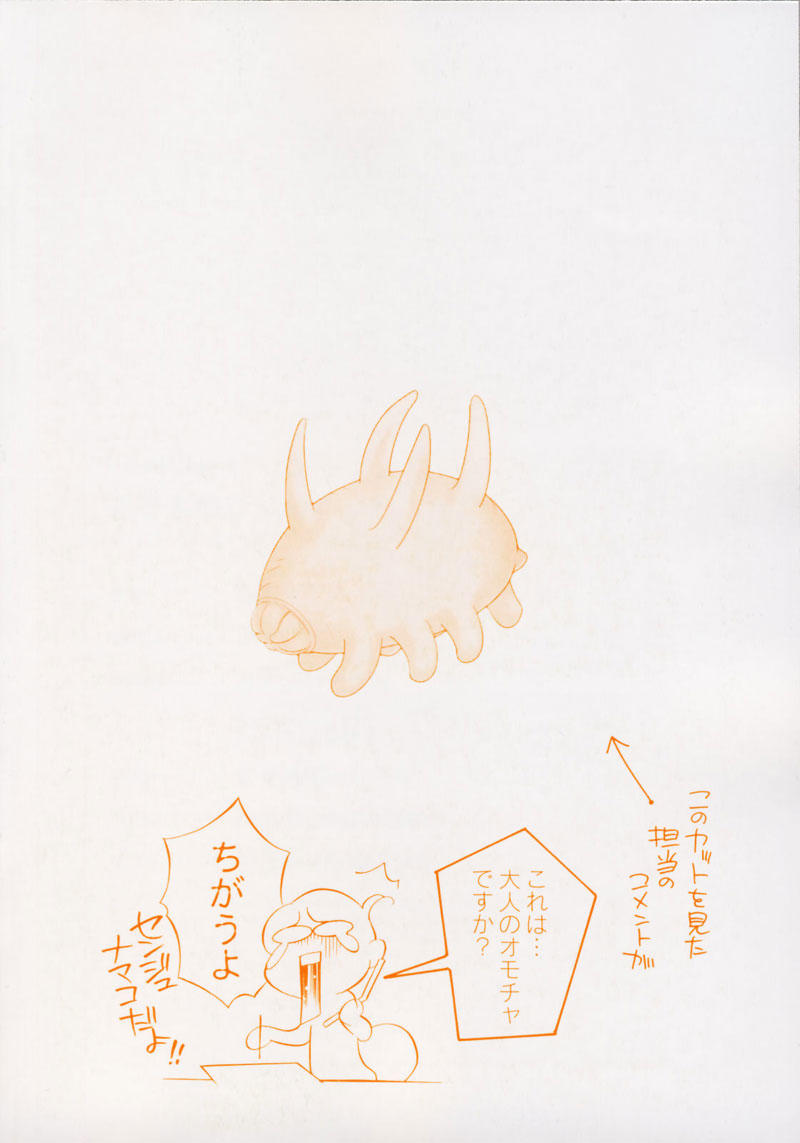 このカットを見た
担当の
コメントが
これは…
大人のオモチャ
ですか?
ちがうよ
センジュ
ナマコだよ!!